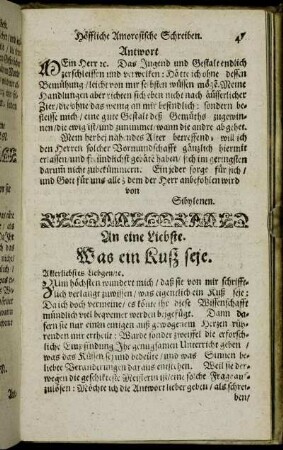 Höffliche Amorosische Schreiben. 41
Antwort
MEin Herr ꝛc. Das Jugend und Gestalt endlich
zerschleissen und verwelken: Hätte ich ohne dessen
Bemühung / leicht von mir selbsten wüssen mögē. Meine
Handlungen aber richten sich eben nicht nach äusserlicher
Zier / die ohne das wenig an mir befindlich: sondern be-
fleisse mich / eine gute Gestalt deß Gemüths zugewin-
nen / die ewig ist / und zunimmt wann die andre abgehet.
Mein herbey nahendes Alter betreffend; will ich
den Herren solcher Vormundschafft gäntzlich hiermit
erlassen / und freündlichst gebäten haben / sich im geringsten
darum nicht zubekümmeren. Ein jeder sorge für sich /
und Gott für uns alle; dem der Herr anbefohlen wird
von
Sibylenen.
An eine Liebste.
Was ein Kuß seje.
Allerliebstes Liebgenne.
ZUm höchsten wundert mich / daß sie von mir schrifft-
lich verlangt zuwissen / was eigentlich ein Kuß seje;
Da ich doch vermeine / es köñte ihr diese Wissenschafft
mündlich viel bequemer werden beygefügt. Dann da-
fern sie nur einen einigen auß gewogenem Hergen rüh-
renden mir ertheilt: Wurde sonder zweiffel die erfreü-
liche Empfindung Ihr genugsamen Unterricht geben /
was das Küssen sey und bedeüte / und was Sinnen be-
liebte Veränderungen daraus entstehen. Weil sie der-
wegen die geschickteste Meisterin ist / eine solche Frag auf-
zulösen: Möchte ich die Antwort lieber geben / als schrei-
ben /